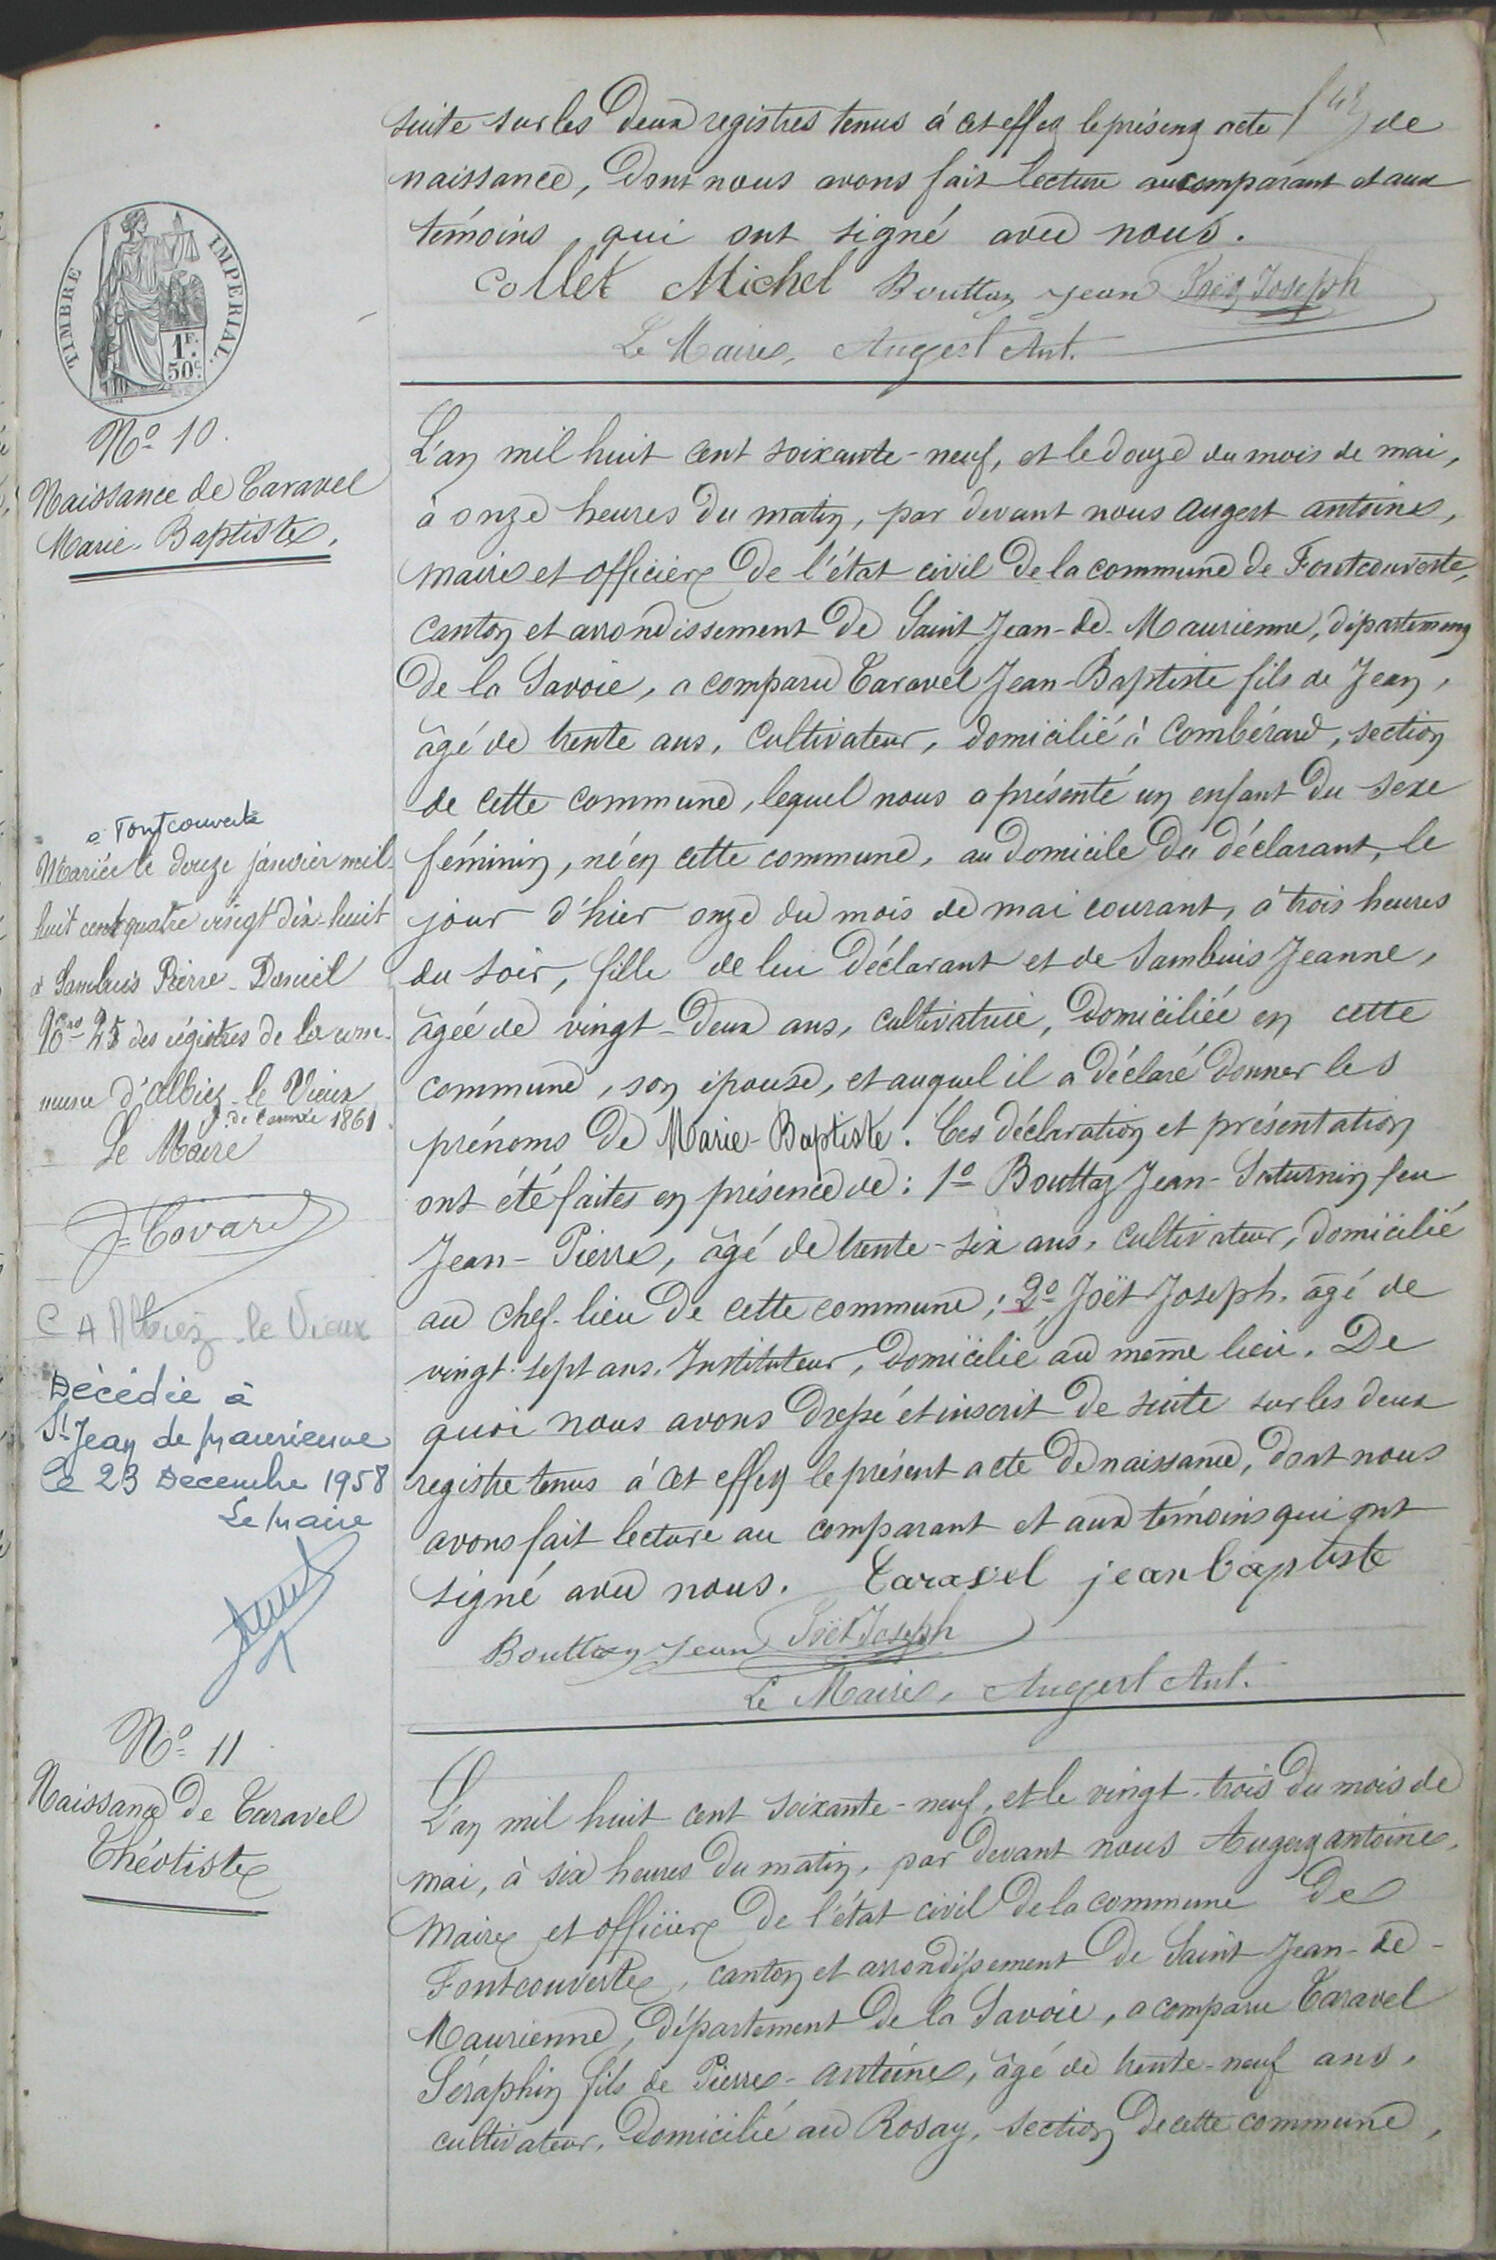 suite sur les deux registres tenus à cet effet le présent acte de
naissance, dont nous avons fait lecture au comparant et aux
témoins, qui ont signé avec nous.
Collet Michel Bouttaz Jean Joët Joseph
Le Maire, Augert Ant.
TIMBRE IMPERIAL.
1F. 50c.
No 10.
Naissance de Taravel
Marie-Baptiste.
L'an mil huit cent soixante-neuf, et le douze du mois de mai,
à onze heures du matin, par devant nous augert antoine,
maire et officier de l'état civil de la commune de Fontcouverte,
canton et arrondissement de Saint Jean-de-Maurienne, département
de la Savoie, a comparu Taravel Jean-Baptiste fils de Jean,
âgé de trente ans, cultivateur, domicilié à Combérard, section
de cette commune, lequel nous a présenté un enfant du sexe
féminin, né en cette commune, au domicile du déclarant, le
jour d'hier onze du mois de mai courant, à trois heures
du soir, fille de lui déclarant et de Sambuis Jeanne,
âgée de vingt-deux ans, cultivatrice, domiciliée en cette
commune, son épouse, et auquel il a déclaré donner les
prénoms de Marie-Baptiste. Ces déclaration et présentation
ont été faites en présence de: 1o Bouttaz Jean-Saturnin feu
Jean-Pierre, âgé de trente-six ans, cultivateur, domicilié
au chef-lieu de cette commune; 2o Joët Joseph, âgé de
vingt-sept ans, Instituteur, domicilié au même lieu. De
quoi nous avons dressé et inscrit de suite sur les deux
registre tenus à cet effet le présent acte de naissance, dont nous
avons fait lecture au comparant et aux témoins qui ont
signé avec nous. Taravel jean baptiste
Bouttaz Jean Joët Joseph
Le Maire, Augert Ant.
à Fontcouverte
Mariée le douze janvier mil
huit cent quatre vingt dix-huit
à Sambuis Pierre-Daniel
no 25 des régistres de la com-
mune d'Albiez-le Vieux
de l'année 1861
Le Maire
C A Albiez-le Vieux
Décédée à
St Jean de Maurienne
le 23 Décembre 1958
Le Maire
No 11
Naissance de Taravel
Théotiste
L'an mil huit cent soixante-neuf, et le vingt-trois du mois de
mai, à six heures du matin, par devant nous Augert antoine,
Maire et officier de l'état civil de la commune de
Fontcouverte, canton et arrondissement de Saint Jean-de-
Maurienne, département de la Savoie, a comparu Taravel
Séraphin fils de Pierre-antoine, âgé de trente-neuf ans,
cultivateur, domicilié au Rosay, section de cette commune,